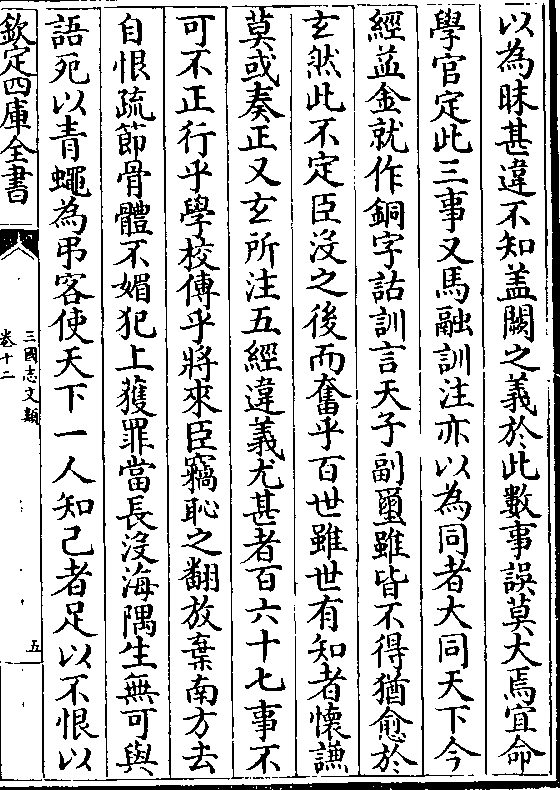 以為昧甚違不知盖闕之義於此數事誤莫大焉宜命
學官定此三事又馬融訓注亦以為同者大同天下今
經益金就作銅字詁訓言天子副璽雖皆不得猶愈於
玄然此不定臣沒之後而奮乎百世雖世有知者懷謙
莫或奏正又玄所注五經違義尤甚者百六十七事不
可不正行乎學校傳乎將來臣竊恥之翻放棄南方去
自恨疏節骨體不媚犯上獲罪當長沒海隅生無可與
語死以青蠅為弔客使天下一人知己者足以不恨以
欽定四庫全書
三國志文類
卷十二
五